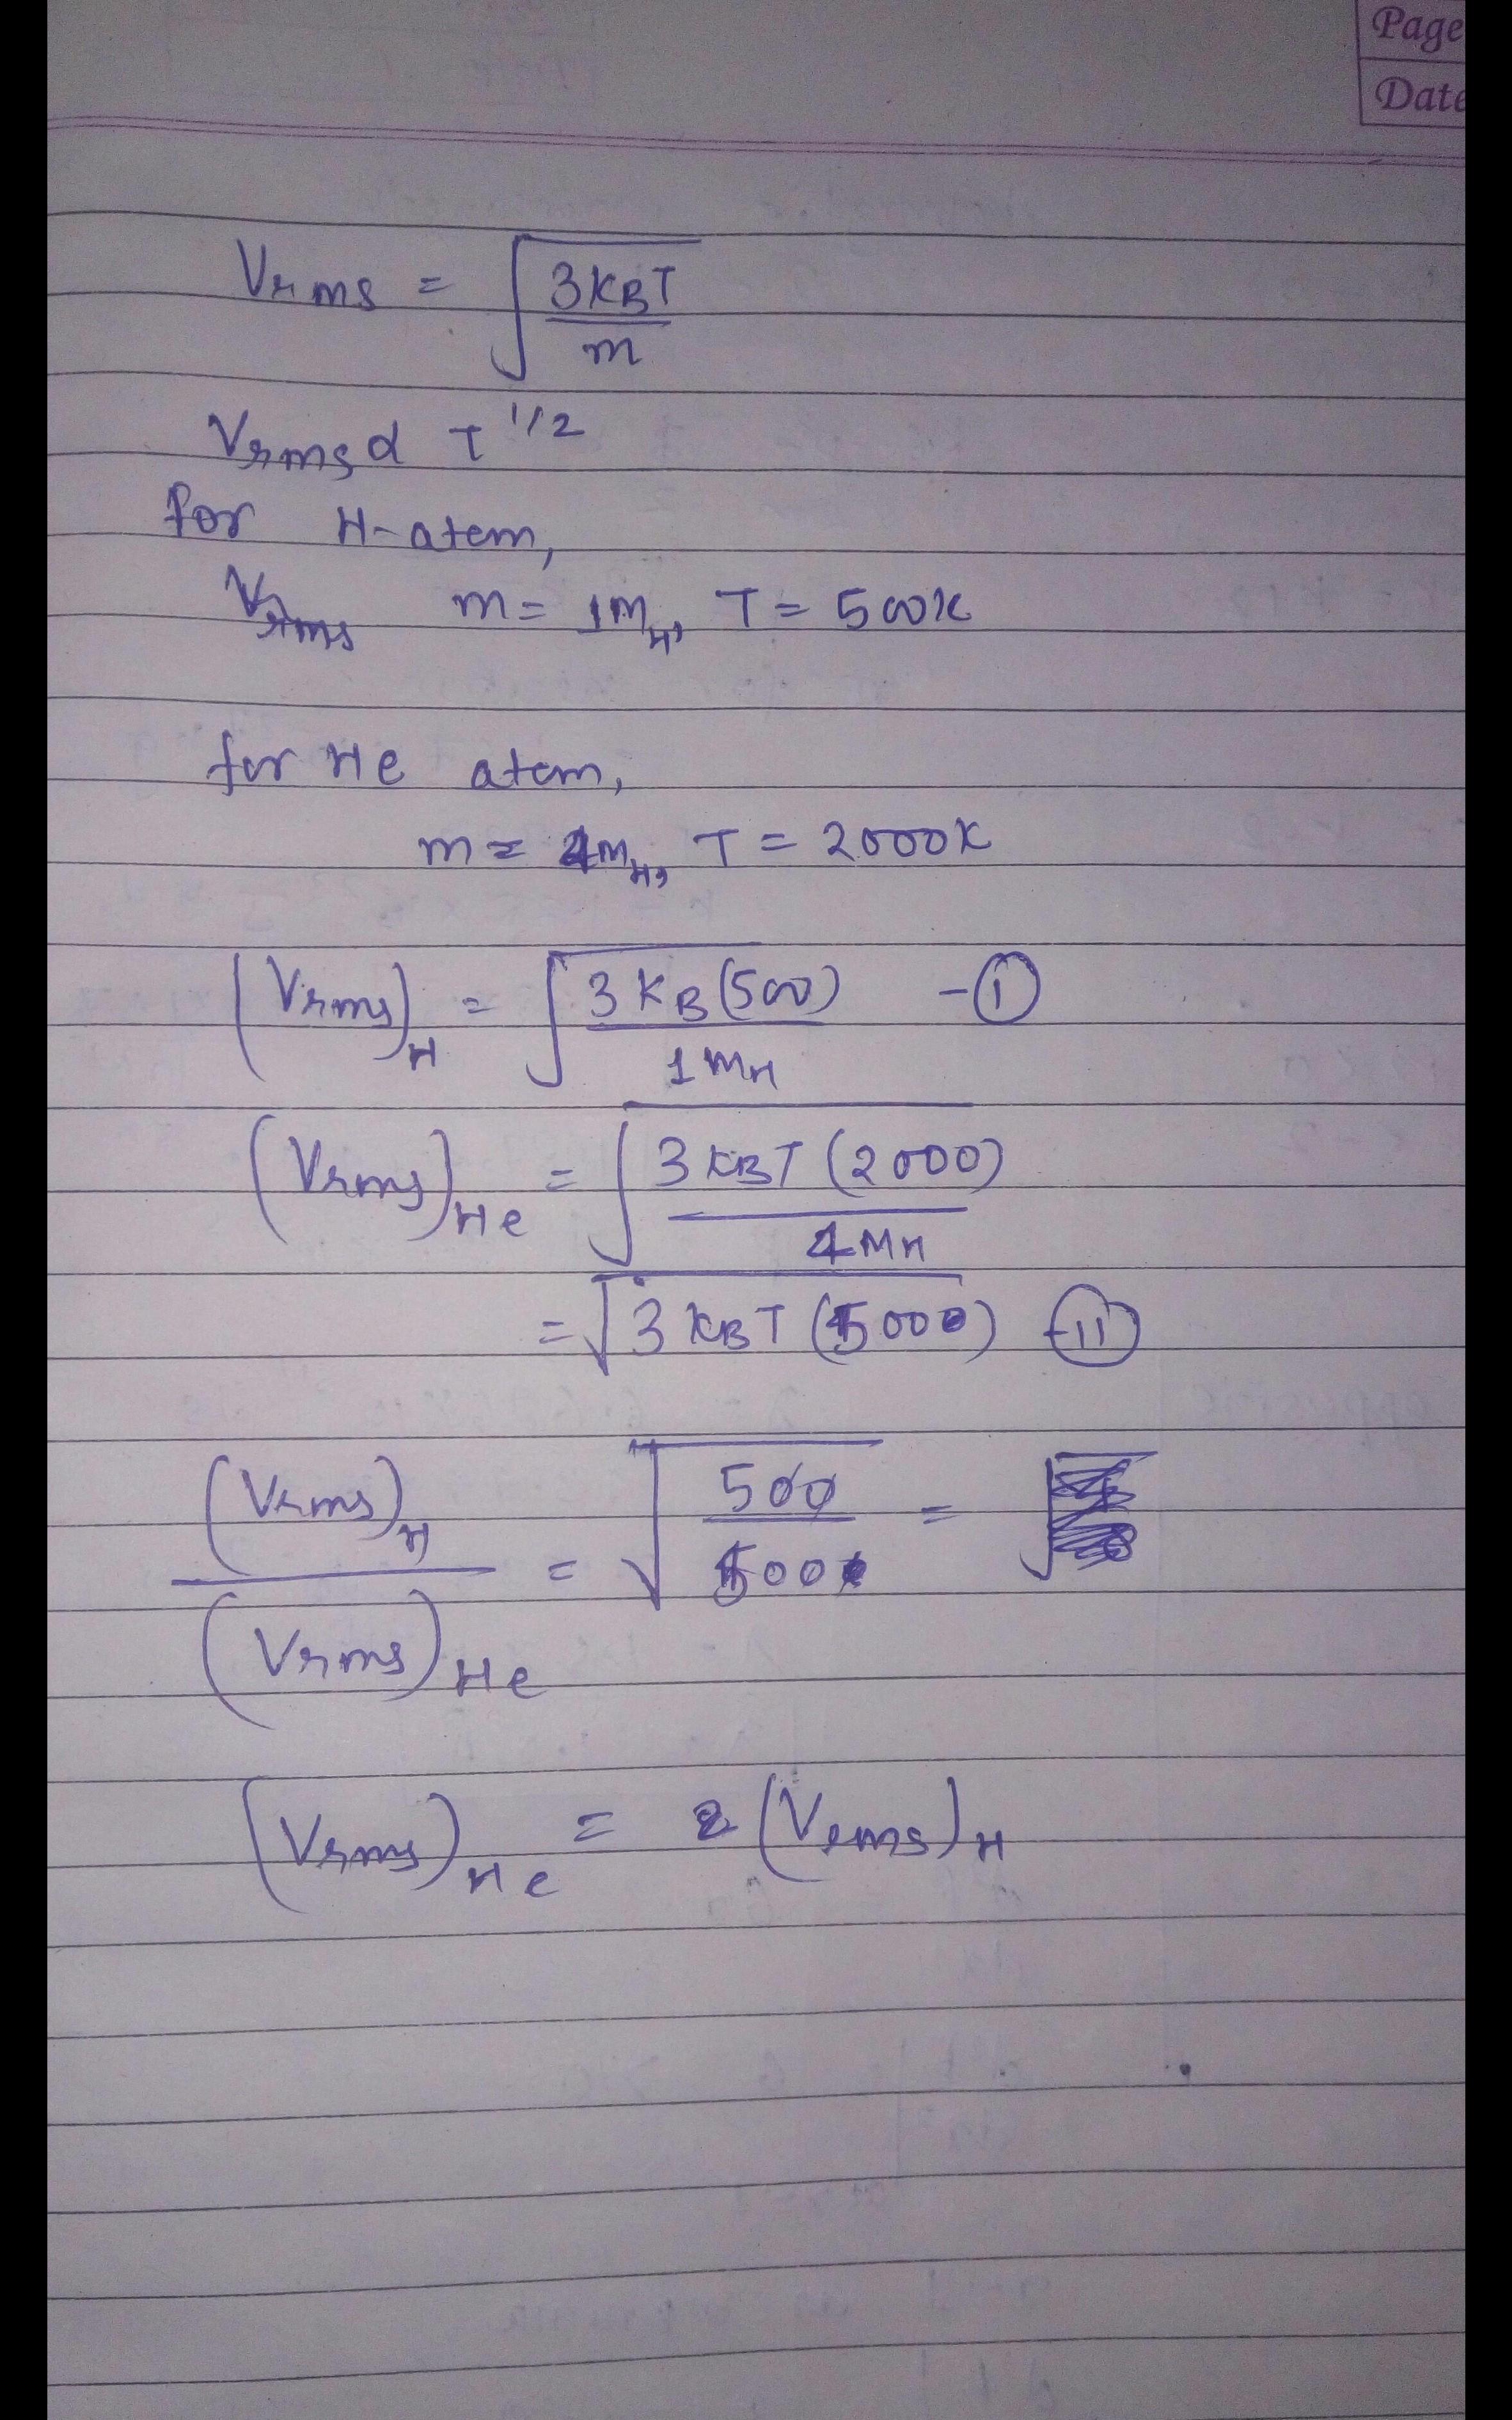 Page
Date
Vrms = √(3KBT/m)
Vrms α T^1/2
for H-atem,
Vrms m = 1MH, T = 500K
for He atem,
m = 4MH, T = 2000K
(Vrms)H = √(3KB(500)/1MH) - (I)
(Vrms)He = √(3KBT(2000)/4MH)
= √3KBT(500) - (II)
(Vrms)H/(Vrms)He = √(500/500) =
(Vrms)He = 2(Vrms)H